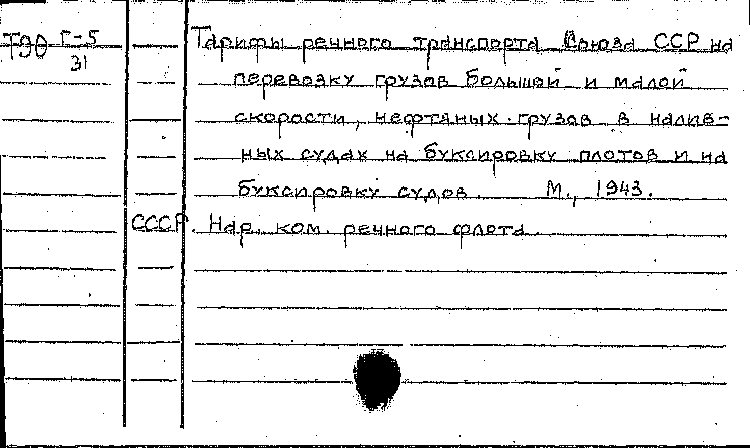 Т90 Г-5 Тарифы речного транспорта Союза ССР на
31
перевозку грузов большой и малой
скорости, нефтяных грузов в налив-
ных судах на буксировку плотов и на
буксировку судов. М., 1943.
СССР. Нар. ком. речного флота.